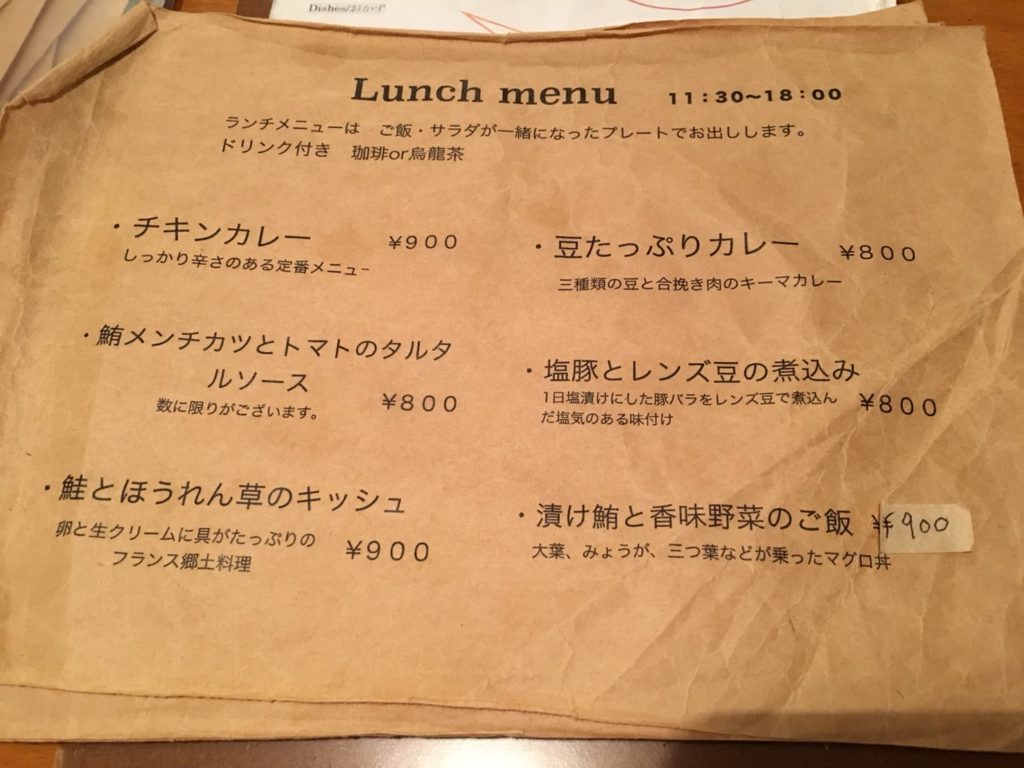 Dishes/おかず
Lunch menu 11:30~18:00
ランチメニューは ご飯・サラダが一緒になったプレートでお出しします。
ドリンク付き 珈琲or烏龍茶
・チキンカレー ¥900
しっかり辛さのある定番メニュー
・豆たっぷりカレー ¥800
三種類の豆と合挽き肉のキーマカレー
・鮪メンチカツとトマトのタルタ
ルソース
数に限りがございます。 ¥800
・塩豚とレンズ豆の煮込み
1日塩漬けにした豚バラをレンズ豆で煮込ん
だ塩気のある味付け
¥800
・鮭とほうれん草のキッシュ
卵と生クリームに具がたっぷりの
フランス郷土料理
¥900
・漬け鮪と香味野菜のご飯 ¥900
大葉、みょうが、三つ葉などが乗ったマグロ丼